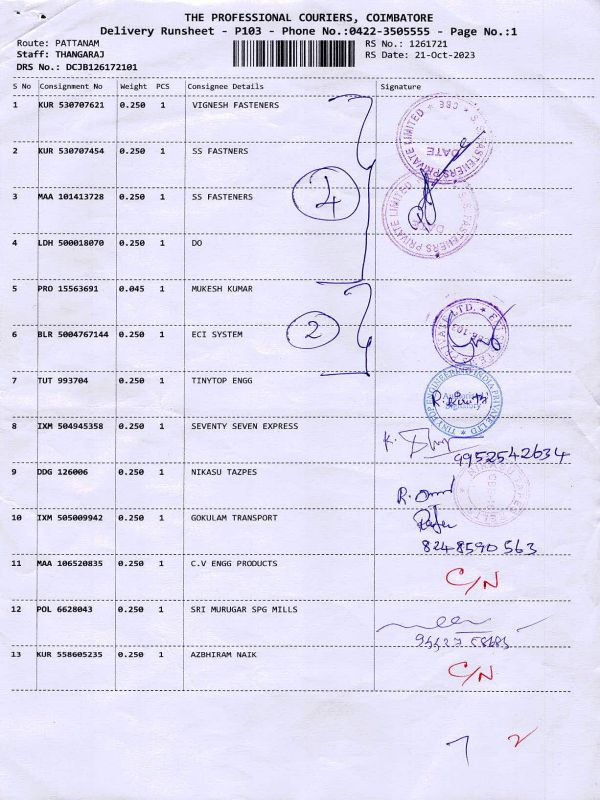 THE PROFESSIONAL COURIERS, COIMBATORE
Delivery Runsheet - P103 - Phone No.:0422-3505555 - Page No.:1
Route: PATTANAM RS No.: 1261721
Staff: THANGARAJ RS Date: 21-Oct-2023
DRS No.: DCJB126172101
S No Consignment No Weight PCS Consignee Details Signature
1 KUR 530707621 0.250 1 VIGNESH FASTENERS
2 KUR 530707454 0.250 1 SS FASTNERS
4
3 MAA 101413728 0.250 1 SS FASTENERS
4 LDH 500018070 0.250 1 DO
S.S. FASTENERS PRIVATE LIMITED * CBE *
DATE
S.S. FASTENERS PRIVATE LIMITED
DATE
5 PRO 15563691 0.045 1 MUKESH KUMAR
2
6 BLR 5004767144 0.250 1 ECI SYSTEM
7 TUT 993704 0.250 1 TINYTOP ENGG
TINYTOP ENGINEERING INDIA PRIVATE LTD
8 IXM 504945358 0.250 1 SEVENTY SEVEN EXPRESS
9952542634
9 DDG 126006 0.250 1 NIKASU TAZPES
10 IXM 505009942 0.250 1 GOKULAM TRANSPORT
8248590563
11 MAA 106520835 0.250 1 C.V ENGG PRODUCTS C/N
12 POL 6628043 0.250 1 SRI MURUGAR SPG MILLS
13 KUR 558605235 0.250 1 AZBHIRAM NAIK C/N
7 2